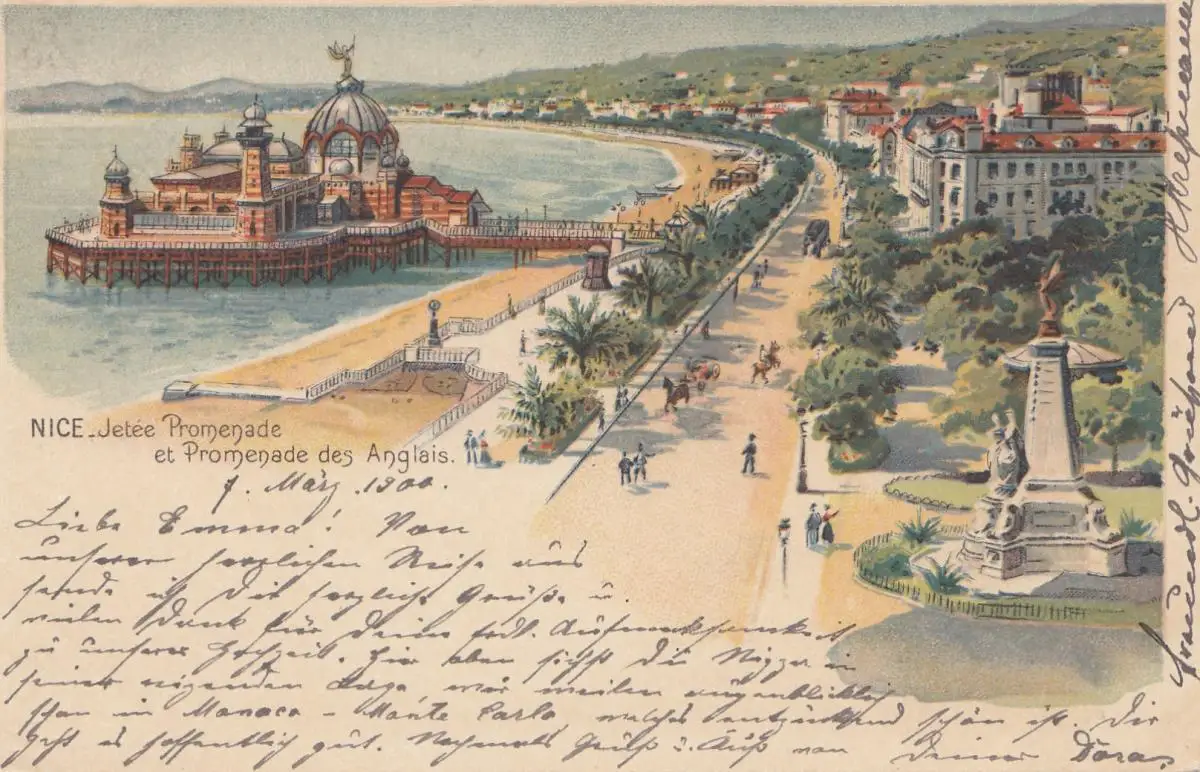 NICE_Jetée Promenade
et Promenade des Anglais.
7. März 1900.
Liebe Emma! Von
unserer herrlichen Reise aus
sende ich Dir herzliche Grüße u.
vielen Dank für Deine frdl. Aufmerksamkeit
zu unserer Hochzeit. Hier oben siehst Du Nizza in
seiner reizenden Lage, wir weilen augenblicklich
schon in Monaco – Monte Carlo, welches entzückend schön ist. Dir
geht es hoffentlich gut. Nochmals Gruß u. Kuß von Deiner Dora.